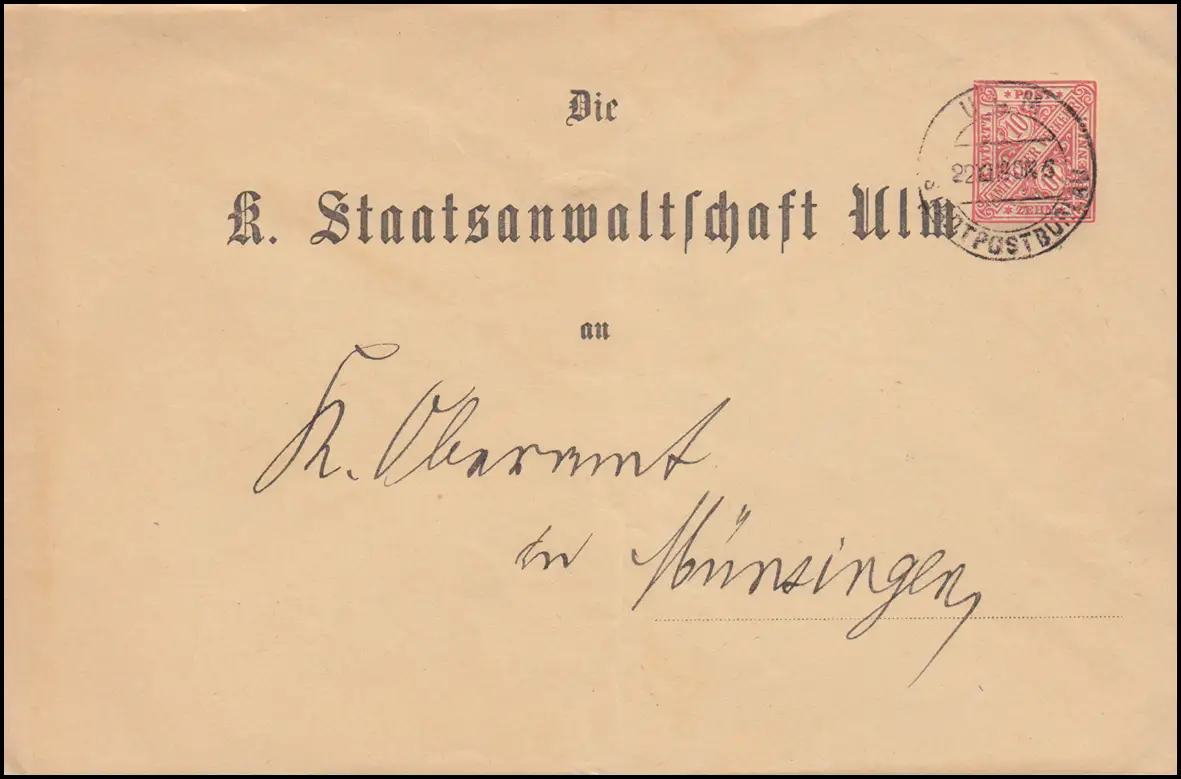 Die
K. Staatsanwaltschaft Ulm
an
K. Oberamt
in Münsingen
* POST
10
ZEHN
ULM
STADTPOSTBUREAU